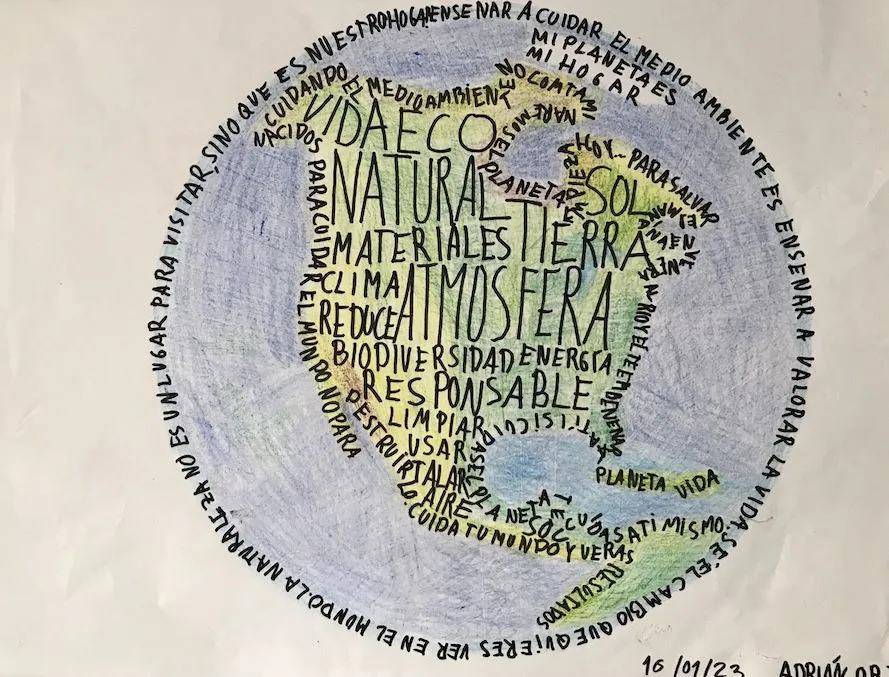 LA NATURALEZA NO ES UN LUGAR PARA VISITAR, SINO QUE ES NUESTRO HOGAR ENSEÑAR A CUIDAR EL MEDIO AMBIENTE ES ENSEÑAR A VALORAR LA VIDA. SÉ EL CAMBIO QUE QUIERES VER EN EL MUNDO.
MI PLANETA ES
MI HOGAR
CUIDANDO EL MEDIOAMBIENTE
NO CONTAMI
NAREMOS EL PLANETA
NACIDOS PARA CUIDAR EL MUNDO NO PARA
DESTRUIRLO
VIDA ECO
NATURAL
EMPIEZA HOY.. PARA SALVAR
SOL
MATERIALES TIERRA
CLIMA ATMOSFERA
REDUCE
BIODIVERSIDAD ENERGÍA
RESPONSABLE
LIMPIAR
USAR
TALAR
AIRE
SI CUIDAS EL PLANETA TE CUIDAS A TI MISMO.
SOL
PLANETA VIDA
CUIDA TU MUNDO Y VERAS
RESULTADOS
16/01/23 ADRIÁN